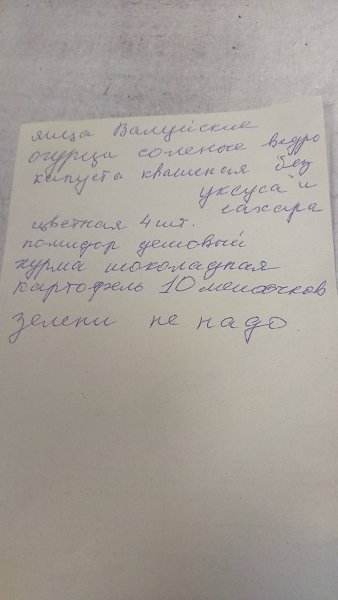 яйца Валуйские
огурца соленые ведро
капуста квашеная "без
уксуса" и
сахара
цветная 4 шт.
помидор дешовый
хурма шоколадная
картофель 10 мешочков
зелени не надо